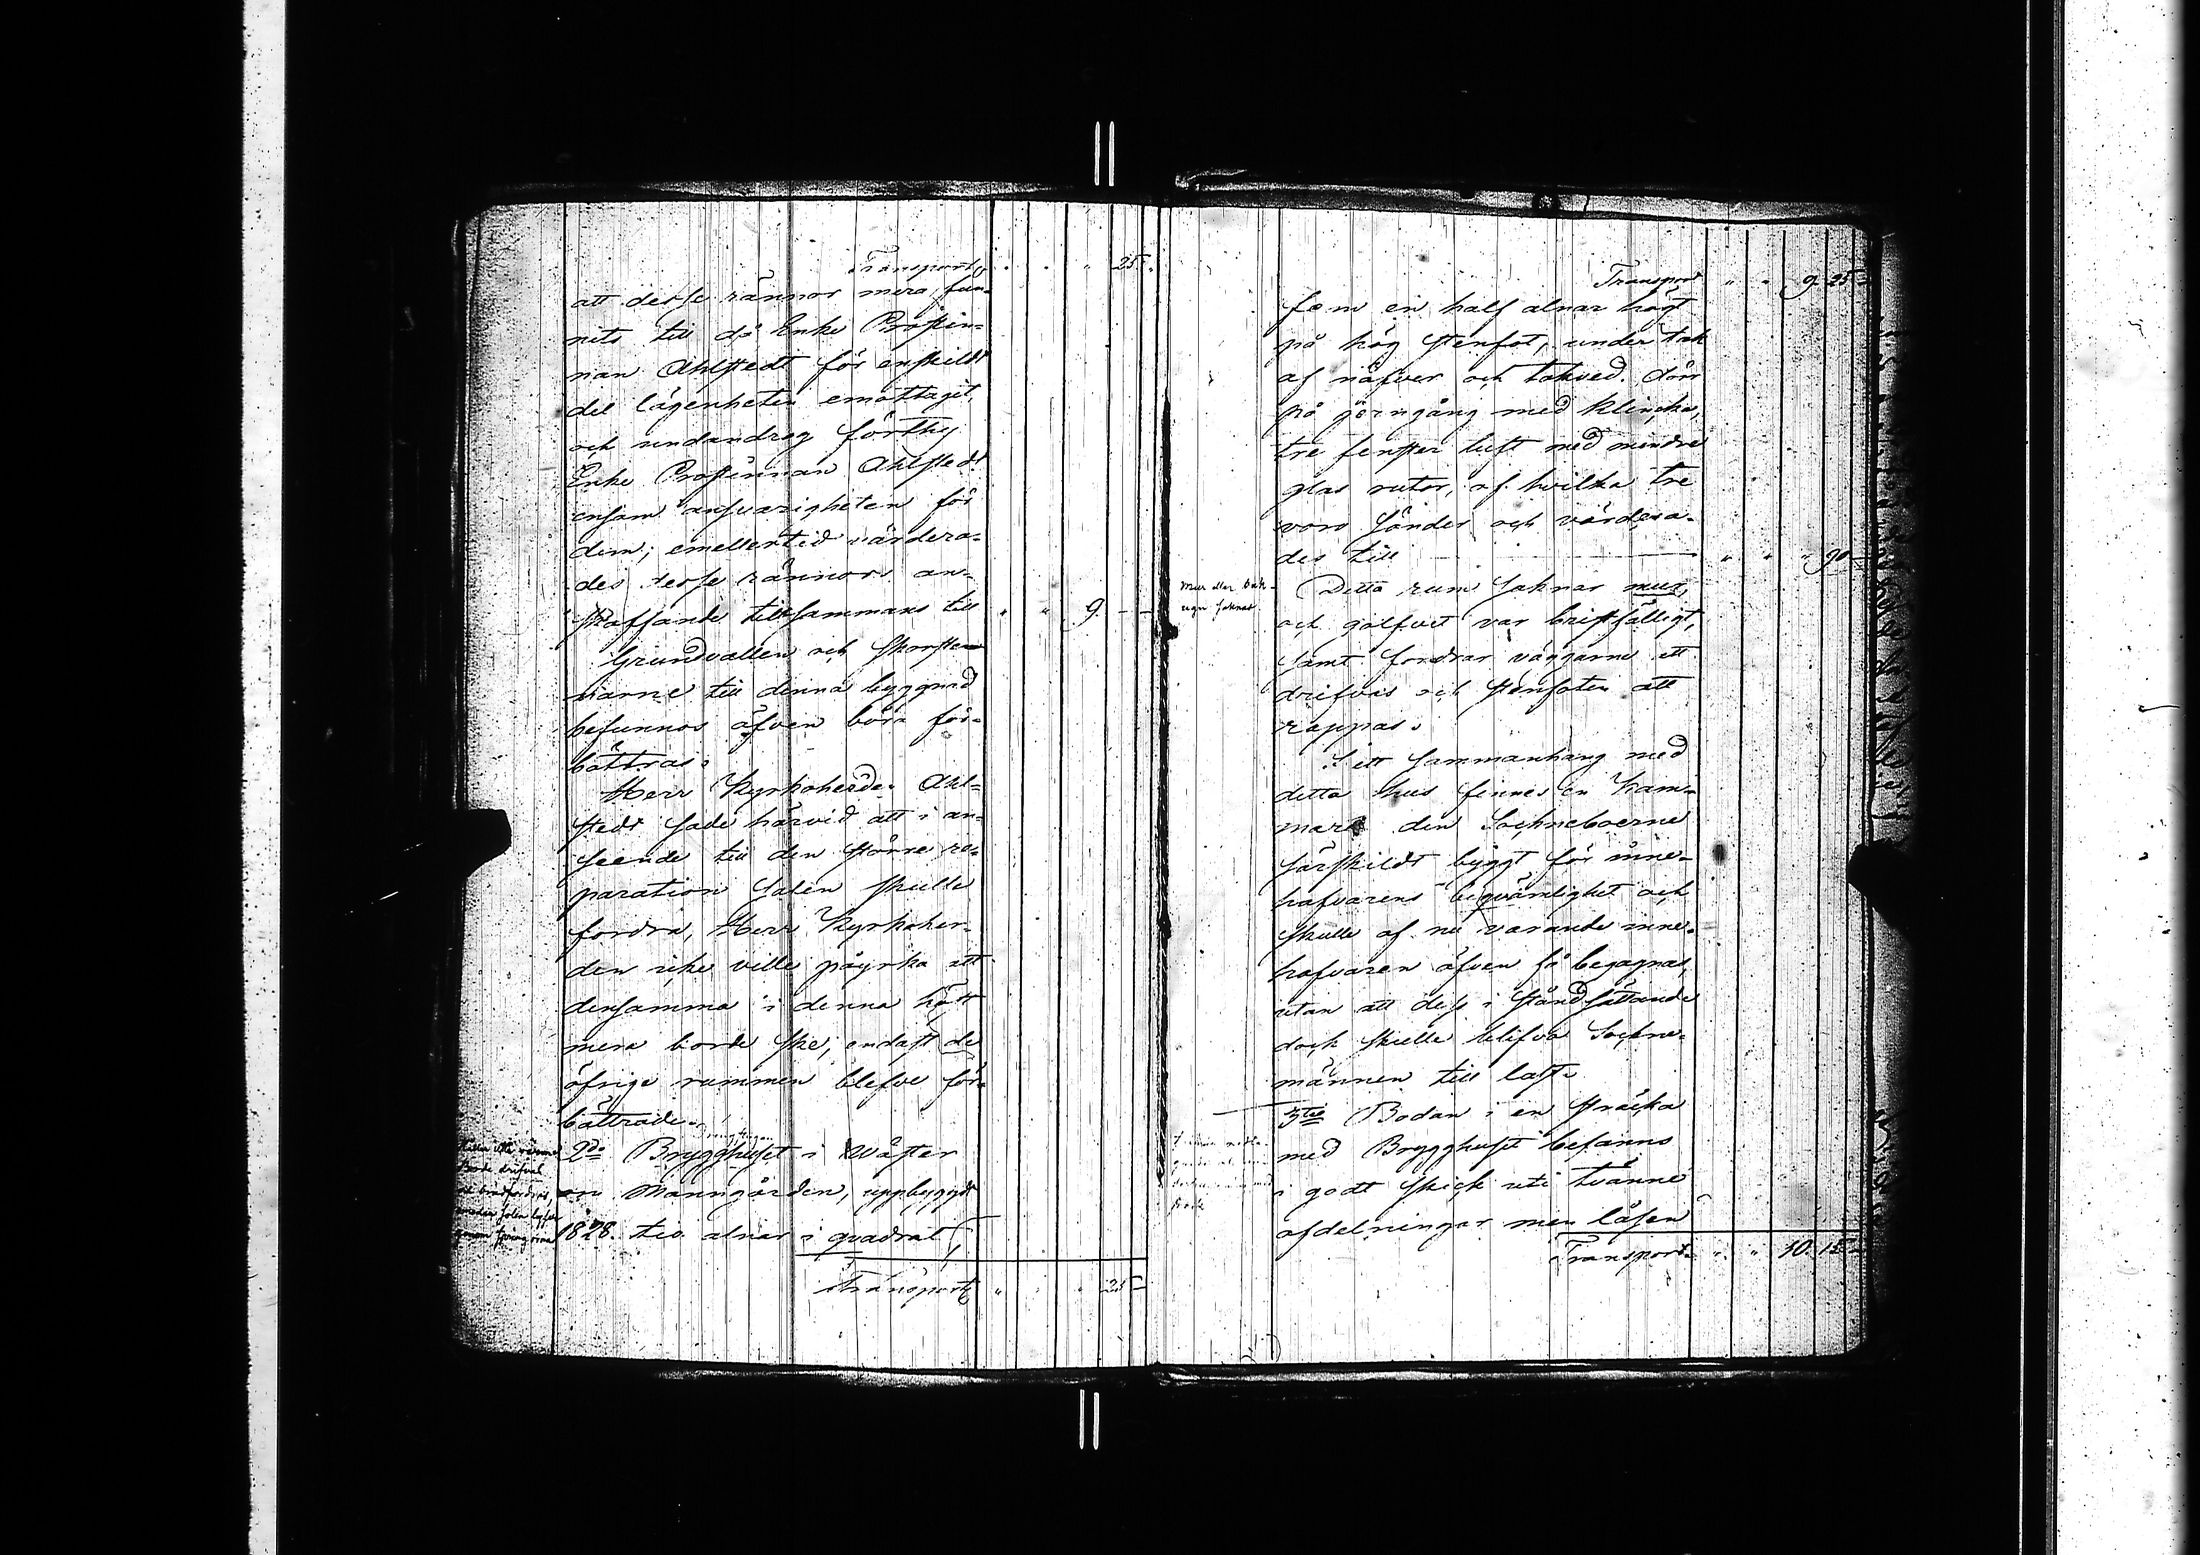 Transport " " " 25.
att desse rännor mera fun-
nits till då Enke Prostin-
nan Ahlstedt för enskildt
del lägenheten emottagit,
och undandrog förthy
Enke Prostinnan Ahlstedt
ensam ansvarigheten för
dem; emellertid värdera-
des desse rännors an-
skaffande tillsammans till " " 9. - -
Grundvallen och skorste-
narne till denna byggnad
befunnos äfven böra för-
bättras.
Herr Kyrkoherde Ahl-
stedt sade härvid att i an-
seende till den större re-
paration salen skulle
fordra, Herr Kyrkoher-
den icke ville påyrka att
densamma i denna hätt
mera borde ske, endast de
öfrige rummen blefve för-
bättrade.
2do Brygghuset i Wäster
om Manngården, uppbygdt
1828. tio alnar i quadrat,
Transport " " " 25
Transport " " 9. 25
fem en half alnar högt
på hög stenfot, under tak
af näfver och takved. dörr
på jerngång med klincka,
tre fenster luft med mindre
glas rutor, af hvilka tre
voro sönder och värdera-
des till " " " 90
Mur eller bak-
ugn saknas.
Detta rum saknar mur,
och golfvet var bristfälligt,
samt fordrar väggarne att
drifvas och stenfoten att
rappas.
I ett sammanhang med
detta hus finnes en Kam-
mare den Sockneboerne
särskildt byggt för inne-
hafvarens beqvämlighet och
skulle af nu varande inne-
hafvaren äfven få begagnas,
utan att dess i ståndsättande
dock skulle blifva Sockne-
männen till last.
3tio Bodan i en sträcka
med Brygghuset befanns
i godt skick uti tvänne
afdelningar men låsen
Transport " " 10. 15